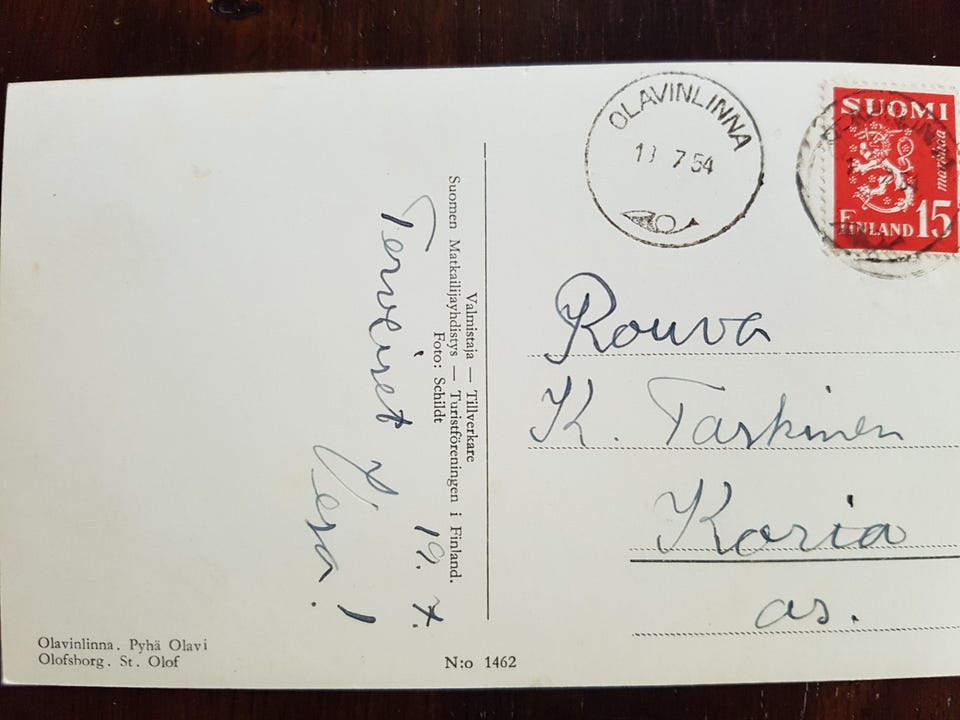 OLAVINLINNA
7 54
SUOMI
markkaa
FINLAND 15
Rouva
K. Tarkinen
Koria
as.
Valmistaja — Tillverkare
Suomen Matkailijayhdistys — Turistföreningen i Finland.
Foto: Schildt
19. 7.
Terveiset
!
Vesa.
Olavinlinna. Pyhä Olavi
Olofsborg. St. Olof
N:o 1462